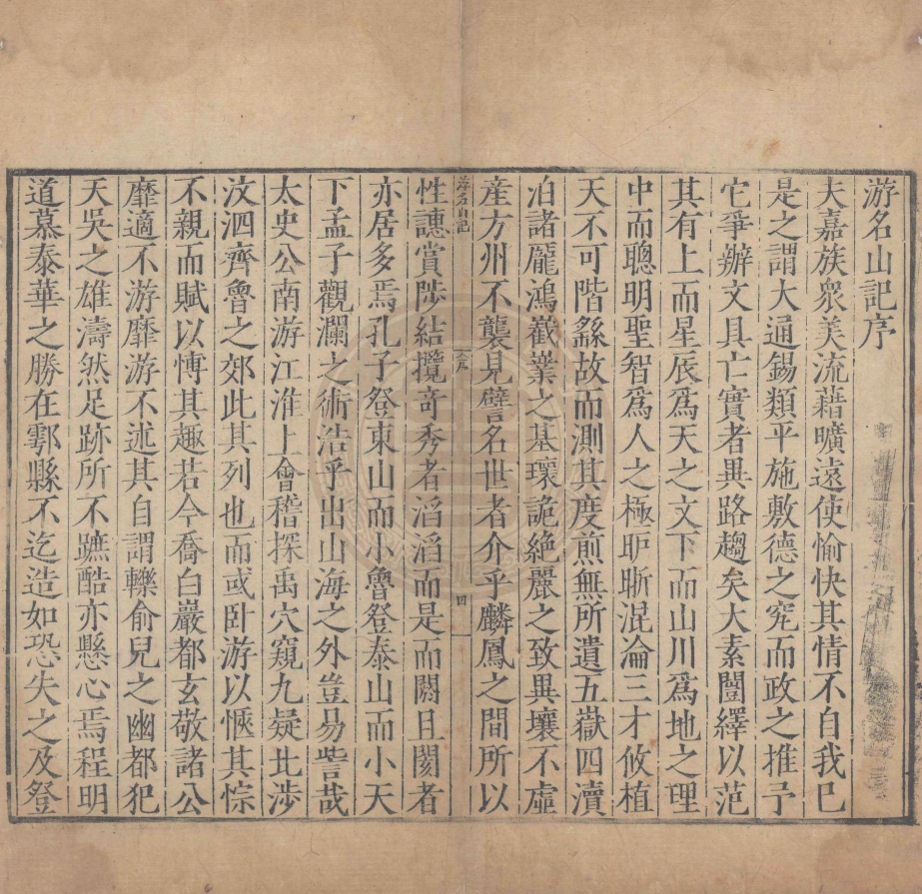 游名山記序
夫嘉族衆美流藉曠遠使愉快其情不自我已
是之謂大通錫類平施敷德之究而政之推予
它爭辦文具亡實者異路趨矣大素闓繹以范
其有上而星辰爲天之文下而山川爲地之理
中而聰明聖智爲人之極昈晣混淪三才攸植
天不可階繇故而測其度煎無所遺五嶽四瀆
泊諸龎鴻嶻嶪之基瓌詭絶麗之致異壤不虛
産方州不襲見譬名世者介乎麟鳳之間所以
游名山記
序
四
性譓賞陟結攬奇秀者滔滔而是而閼且閡者
亦居多焉孔子登東山而小魯登泰山而小天
下孟子觀瀾之術浩乎出山海之外豈易訾哉
太史公南游江淮上會稽探禹穴窺九疑北涉
汶泗齊魯之郊此其列也而或卧游以愜其悰
不親而賦以慱其趣若今喬白巖都玄敬諸公
靡適不游靡游不述其自謂轢俞兒之幽都犯
天吳之雄濤然足跡所不蹠酷亦懸心焉程明
道慕泰華之勝在鄠縣不迄造如恐失之及登